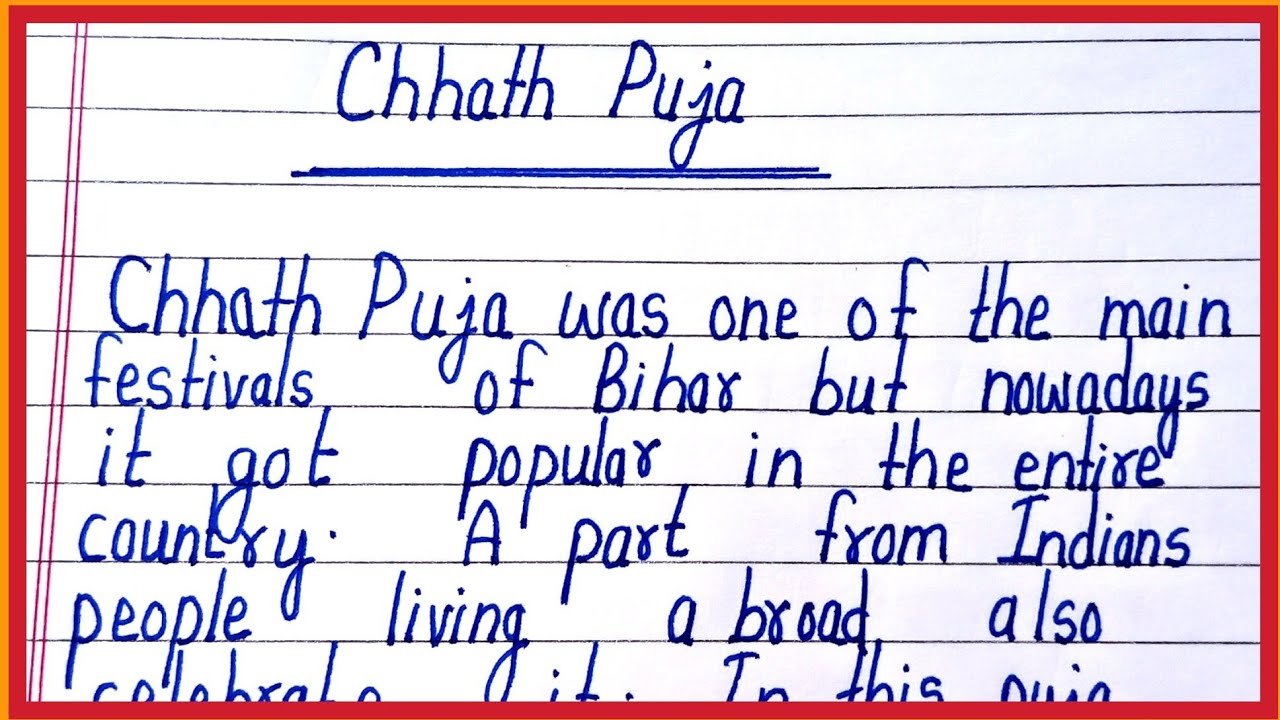 Chhath Puja
Chhath Puja was one of the main
festivals of Bihar but nowadays
it got popular in the entire
country. A part from Indians
people living a broad also
celebrate it. In this puja